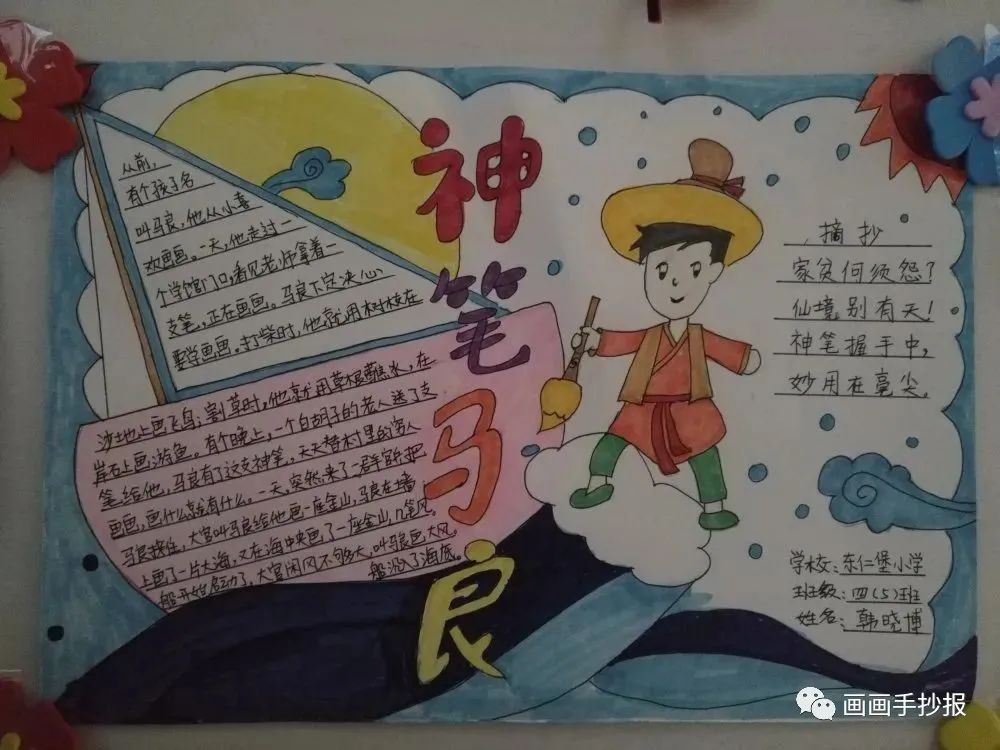 神笔马良
从前，
有个孩子名
叫马良，他从小喜
欢画画。一天，他走过一
个学馆门口，看见老师拿着一
支笔，正在画画。马良下定决心
要学画画。打柴时，他就用树枝在
沙地上画飞鸟；割草时，他就用草根蘸水，在
岸石上画游鱼。有个晚上，一个白胡子的老人送了支
笔给他，马良有了这支神笔，天天替村里的穷人
画画，画什么就有什么。一天，突然来了一群官兵把
马良抓住，大官叫马良给他画一座金山，马良在墙
上画了一片大海，又在海中央画了一座金山，几笔风，
船开始启动了，大官闲风不够大，叫马良画大风，
船沉入了海底。
摘抄
家贫何须怨？
仙境别有天！
神笔握手中，
妙用在毫尖。
学校：东仁堡小学
班级：四（5）班
姓名：韩晓博
画画手抄报